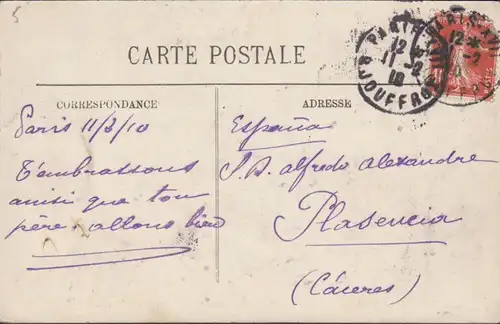 5
CARTE POSTALE
CORRESPONDANCE
Paris 11/2/10
T'embrassons
ainsi que ton
père. allons bien
ADRESSE
España
Alfredo Alexandre
Plasencia
(Cáceres)
PARIS XVII
12
11 - 2
10
R. JOUFFROY
PARIS XVII
12